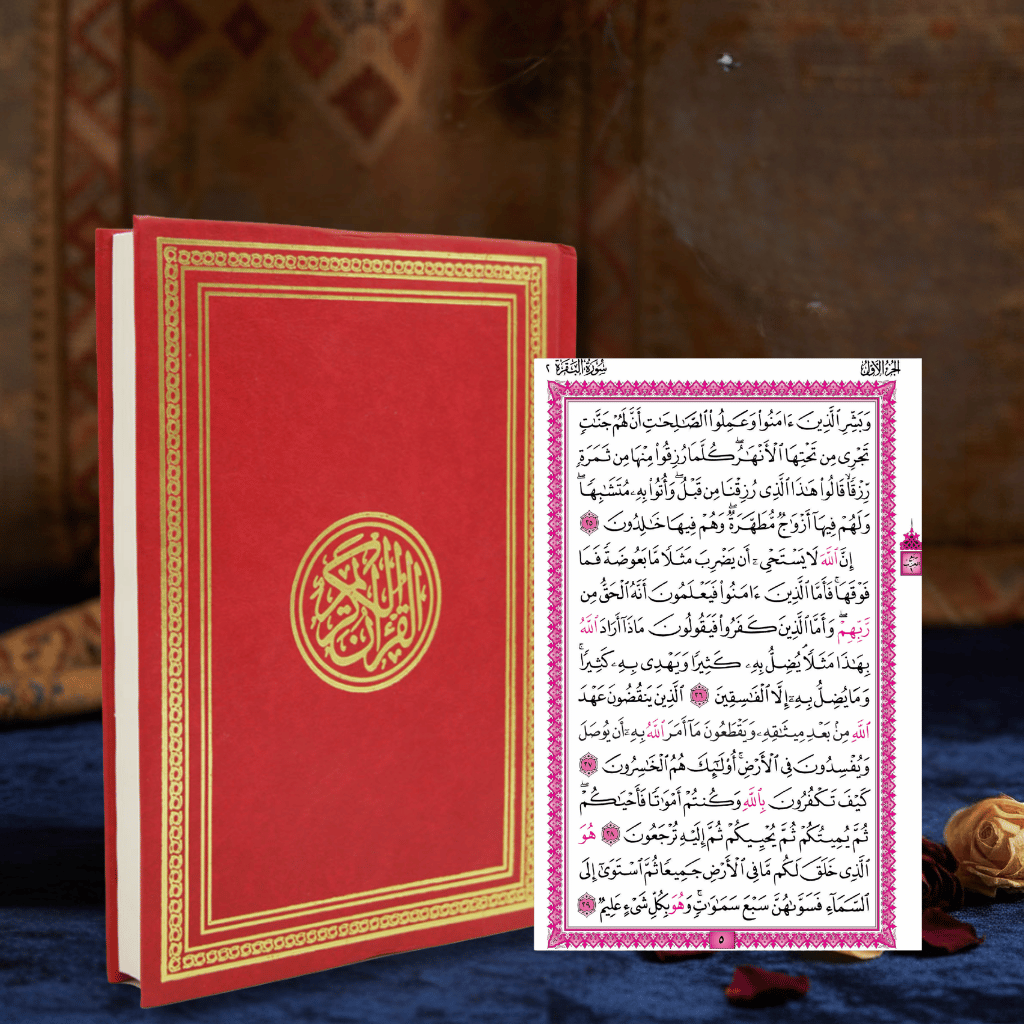 القرآن الكريم
الجزء الأول
سورة البقرة ٢
وَبَشِّرِ ٱلَّذِينَ ءَامَنُوا۟ وَعَمِلُوا۟ ٱلصَّـٰلِحَـٰتِ أَنَّ لَهُمْ جَنَّـٰتٍ
تَجْرِى مِن تَحْتِهَا ٱلْأَنْهَـٰرُ ۖ كُلَّمَا رُزِقُوا۟ مِنْهَا مِن ثَمَرَةٍ
رِّزْقًا ۙ قَالُوا۟ هَـٰذَا ٱلَّذِى رُزِقْنَا مِن قَبْلُ ۖ وَأُتُوا۟ بِهِۦ مُتَشَـٰبِهًا ۖ
وَلَهُمْ فِيهَآ أَزْوَٰجٌ مُّطَهَّرَةٌ ۖ وَهُمْ فِيهَا خَـٰلِدُونَ ٢٥
إِنَّ ٱللَّهَ لَا يَسْتَحْىِۦٓ أَن يَضْرِبَ مَثَلًا مَّا بَعُوضَةً فَمَا
فَوْقَهَا ۚ فَأَمَّا ٱلَّذِينَ ءَامَنُوا۟ فَيَعْلَمُونَ أَنَّهُ ٱلْحَقُّ مِن
رَّبِّهِمْ ۖ وَأَمَّا ٱلَّذِينَ كَفَرُوا۟ فَيَقُولُونَ مَاذَآ أَرَادَ ٱللَّهُ
بِهَـٰذَا مَثَلًا ۘ يُضِلُّ بِهِۦ كَثِيرًا وَيَهْدِى بِهِۦ كَثِيرًا ۚ
وَمَا يُضِلُّ بِهِۦٓ إِلَّا ٱلْفَـٰسِقِينَ ٢٦ ٱلَّذِينَ يَنقُضُونَ عَهْدَ
ٱللَّهِ مِنۢ بَعْدِ مِيثَـٰقِهِۦ وَيَقْطَعُونَ مَآ أَمَرَ ٱللَّهُ بِهِۦٓ أَن يُوصَلَ
وَيُفْسِدُونَ فِى ٱلْأَرْضِ ۚ أُو۟لَـٰٓئِكَ هُمُ ٱلْخَـٰسِرُونَ ٢٧
كَيْفَ تَكْفُرُونَ بِٱللَّهِ وَكُنتُمْ أَمْوَٰتًا فَأَحْيَـٰكُمْ ۖ
ثُمَّ يُمِيتُكُمْ ثُمَّ يُحْيِيكُمْ ثُمَّ إِلَيْهِ تُرْجَعُونَ ٢٨ هُوَ
ٱلَّذِى خَلَقَ لَكُم مَّا فِى ٱلْأَرْضِ جَمِيعًا ثُمَّ ٱسْتَوَىٰٓ إِلَى
ٱلسَّمَآءِ فَسَوَّىٰهُنَّ سَبْعَ سَمَـٰوَٰتٍ ۚ وَهُوَ بِكُلِّ شَىْءٍ عَلِيمٌ ٢٩
٥